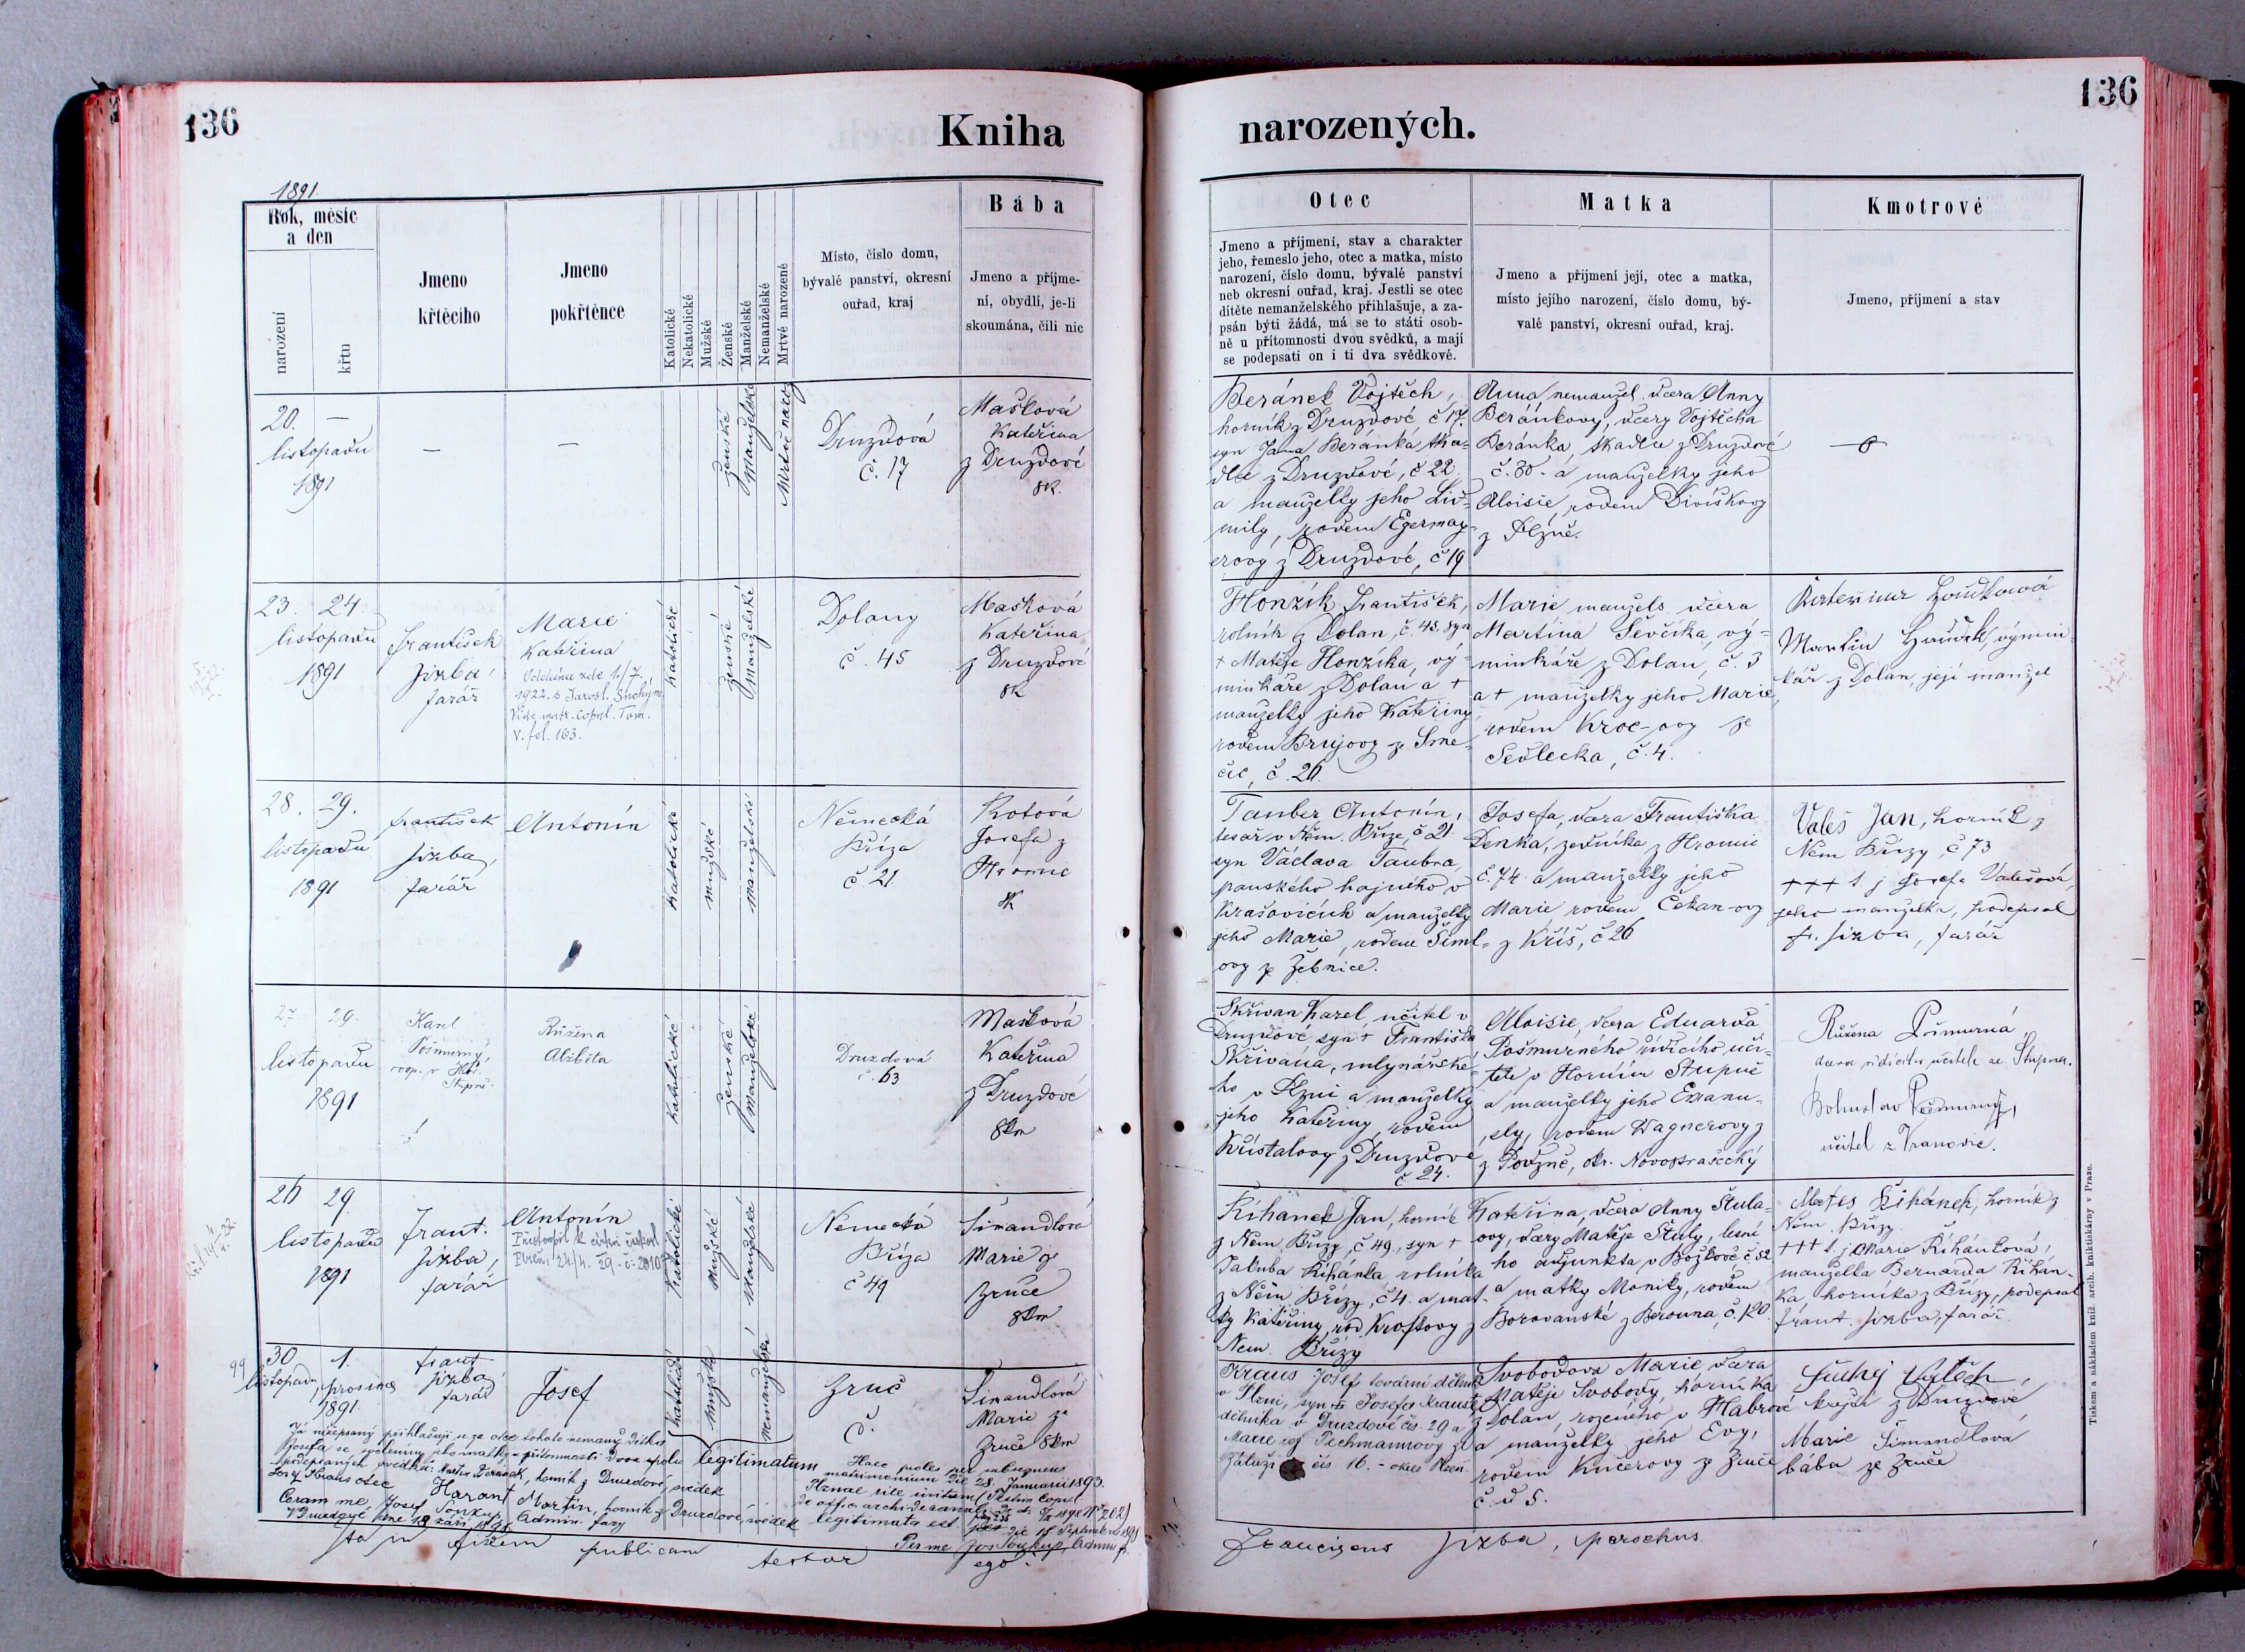 136
Kniha
narozených.
136
1891.
Rok, měsíc
a den
narození
křtu
Jmeno
křtěcího
Jmeno
pokřtěnce
Katolické
Nekatolické
Mužské
Ženské
Manželské
Nemanželské
Mrtvé narozené
Místo, číslo domu,
bývalé panství, okresní
ouřad, kraj
Bába
Jmeno a příjme-
ní, obydlí, je-li
skoumána, čili nic
20. —
listopadu
1891
—
—
ženské
Manželské
Mrtvě naroz.
Druzdová
č. 17
Mašková
Kateřina
z Druzdové
zk.
23. 24
listopadu
1891
František
Jizba,
farář
Marie
Kateřina
Oddána zde 1./7.
1922. s Jarosl. Suchým.
Vide matr. copul. Tom.
V. fol. 163.
katolické
ženské
manželské
Dolany
č. 45
Mašková
Kateřina
z Druzdové
zk
28. 29.
listopadu
1891
František
Jizba,
farář
Antonín
katolické
mužské
manželské
Německá
Bříza
č. 21
Kotová
Josefa z
Hromic
zk
27. 29.
listopadu
1891
Karel
Pošmurný,
Růžena
Alžběta
katolické
ženské
manželské
Druzdová
č. 63
Mašková
Kateřina
z Druzdové
zkm
26 29
listopadu
1891
Frant.
Jizba,
farář
Antonín
katolické
mužské
manželské
Německá
Bříza
č 49
Šimandlová
Marie ze
Zruče
zkm
99
30 1.
listopadu, prosince
1891.
Frant
Jizba
farář
Josef
katolické
mužské
nemanželské
Zruč
č.
Šimandlová
Marie ze
Zruče zkm
legitimatum
Já nížepsaný přihlašuji se za otce tohoto nemanž. dítka
Josefa se svolením jeho matky u přítomnosti dvou spolu
podepsaných svědků: Martin Beránek, horník z Druzdové, svědek
Josef Kraus otec Harant Martin, horník z Druzdové, svědek
Coram me, Josef Soukup, Admin. fary
V Druzdové dne 18 září 1898
Haec proles per subsequens
matrimonium die 28 Januarii 1893.
legitimata est
die 18 Septembris 1898
Per me Jos Soukup, Admin.
Ita in fidem publicam testor ego
Otec
Jmeno a příjmení, stav a charakter
jeho, řemeslo jeho, otec a matka, místo
narození, číslo domu, bývalé panství
neb okresní ouřad, kraj. Jestli se otec
dítěte nemanželského přihlašuje, a za-
psán býti žádá, má se to státi osob-
ně u přítomnosti dvou svědků, a mají
se podepsati on i ti dva svědkové.
Matka
Jmeno a přijmení její, otec a matka,
místo jejího narození, číslo domu, bý-
valé panství, okresní ouřad, kraj.
Kmotrové
Jmeno, příjmení a stav
Beránek Vojtěch,
horník z Druzdové č 17.
syn Jana Beránka tka-
dlce z Druzdové, č 22
a manželky jeho Lid-
mily, rodem Egermay-
erový z Druzdové, č 19
Anna, nemanžel. dcera Anny
Beránkovy, dcery Vojtěcha
Beránka, tkadlce z Druzdové
č. 30. a manželky jeho
Aloisie, rodem Divíškovy
z Plzně.
Honzík František,
rolník z Dolan, č. 45, syn
+ Matěje Honzíka, vý-
minkáře z Dolan a +
manželky jeho Kateřiny
rodem Brujovy ze Sme-
čic, č. 26.
Marie manžels. dcera
Martina Ševčíka, vý-
minkáře z Dolan, č. 3
a + manželky jeho Marie,
rodem Kroc-ovy ze
Sedlecka, č. 4.
Martin
kář z Dolan, její manžel
Tauber Antonín,
tesař v Něm. Bříze, č 21
syn Václava Taubra,
panského hajného v
Krašovicích a manželky
jeho Marie, rodem Šiml-
ovy ze Žebnice.
Josefa, dcera Františka
Denka, zedníka z Hromic
č. 74 a manželky jeho
Marie rodem Čekan-ovy
z Kříš, č 26
Valeš Jan, horník z
Něm Břízy, č 73
+++ t. j. Josefa Valešová,
jeho manželka, podepsal
fr. Jizba, farář
Skřivan Karel učitel v
Druzdové syn + Františka
Skřivana, mlynářské-
ho v Plzni a manželky
jeho Kateřiny, rodem
Krištalovy z Druzdové
č 24.
Aloisie, dcera Eduarda
Pošmurného řídícího uči-
tele v Horním Stupně
a manželky jeho Emanu-
ely, rodem Wagnerovy z
Novostrašecký
Růžena Pošmurná,
dcera řídícího učitele ze Stupna.
Bohuslav Pošmurný,
učitel z Vranovic.
Říhánek Jan, horník
z Něm. Břízy, č 49, syn +
Jakuba Říhánka rolníka
z Něm. Břízy, č 4. a mat-
ky Kateřiny, rod. Kraftovy z
Něm. Břízy
Kateřina, dcera Anny Štula-
ovy, dcery Matěje Štuly, lesní-
ho adjunkta v Božkově, č 52
a matky Moniky, rodem
Borovanské z Berouna, č. 120
Matěs Říhánek, horník z
Něm. Břízy
+++ t. j. Marie Říhánková,
manželka Bernarda Říhán-
ka, horníka z Břízy, podepsal
Frant. Jizba, farář
Kraus Josef tovární dělník
v Plzni, syn Josefa Krause
dělníka v Druzdové čís. 29 a
Marie roz. Pechmannovy ze
Záluží čís 16. - okres Plzeň
Svobodova Marie dcera
Matěje Svobody, horníka
z Dolan, rozeného v Habrové
a manželky jeho Evy,
rodem Kučerovy ze Zruče
č. d 5.
Suchý Vojtěch,
krejčí z Druzdové
Marie Šimandlová
bába ze Zruče
Franciscus Jizba, parochus
Tiskem a nákladem kníž. arcib. knihtiskárny v Praze.